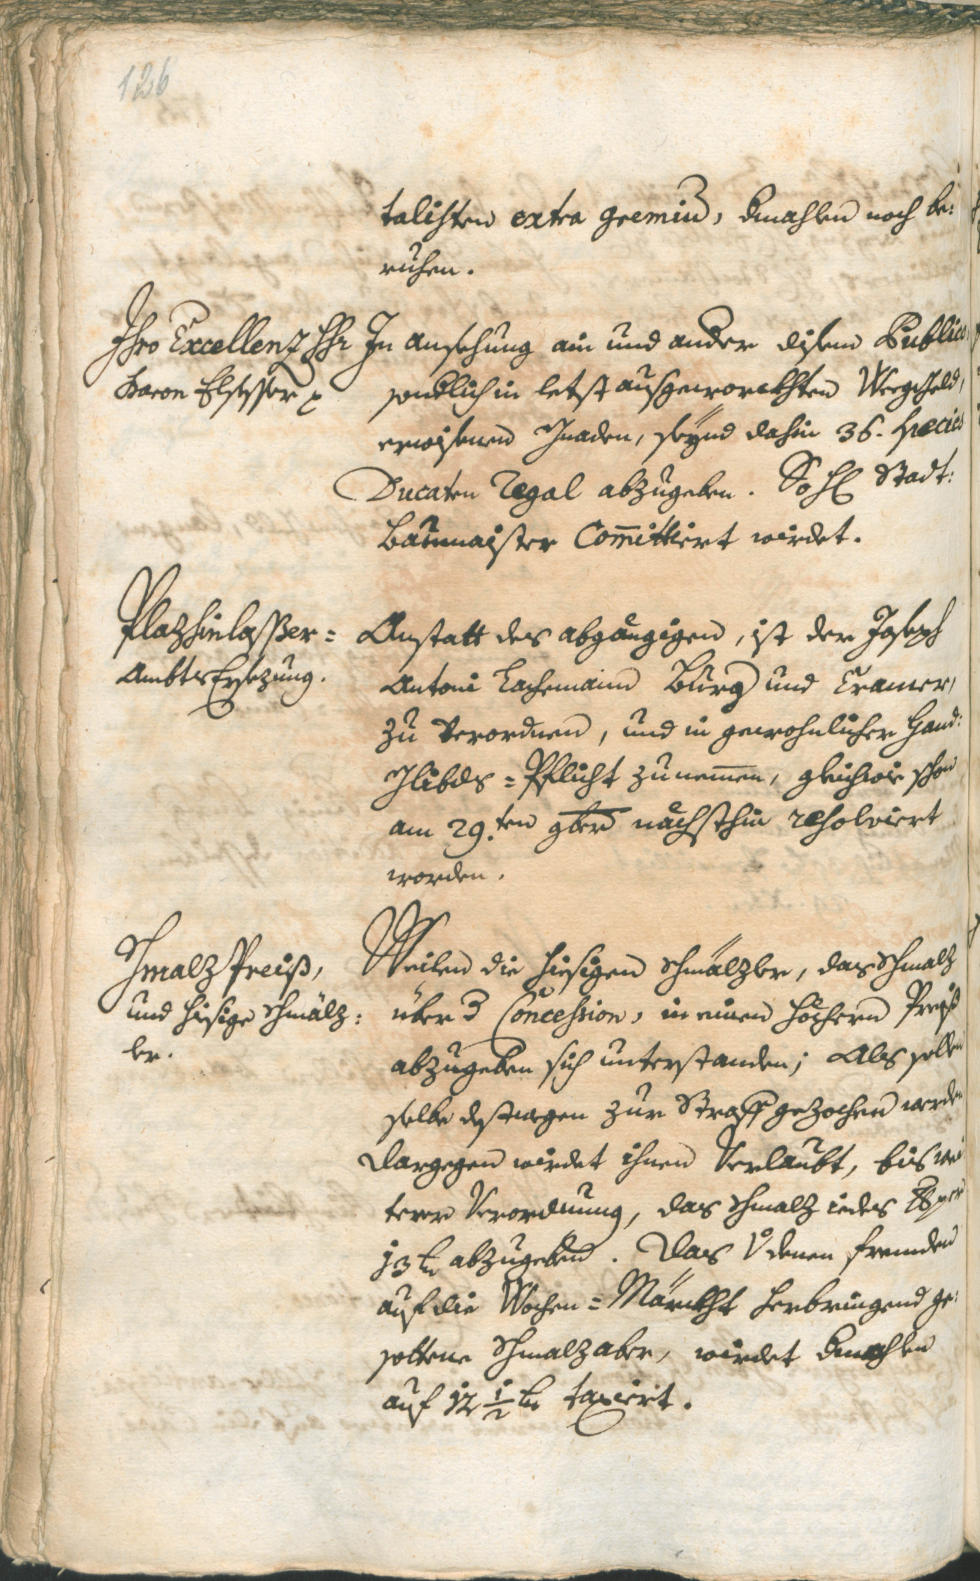 126
talisten extra gremiu, dmahlen noch be:
ruhen.
Ihro Excellenz Hr
Baron Elsesser
In ansehung ain und ander disem Publico
sonderlich in letst ausgeworckhten Weeggeld,
erwisenen Gnaden, seynd dahin 36. species
Ducaten Regal abzugeben. So H Stadt:
baumaister Committiert wirdet.
Plazhinlasser=
Ambts Ersezung.
Anstatt des abgängigen, ist der Joseph
Antoni Lachemaier Burg und Cramer,
zu verordnen, und in gewohnlicher Hand:
Glibds=Pflicht zunemen, gleichwie schon
am 29.ten 9bris nächsthin resolviert
worden.
Schmalz Preiß,
und hisige Schmälz:
ler.
Weilen die hiesigen Schmälzler, das Schmalz
über Concession, in einen höchern Preiß
abzugeben sich unterstanden; Als sollen
selbe destwegen zur Straff gezochen werden
dargegen wirdet ihnen verlaubt, bis wei
tere Verordnung, das Schmalz iedes ℔ per
13 kr abzugeben. Das v denen frembden
auf die Wochen=Märckht herbringend ge:
sottene Schmalz aber, wirdet dmahlen
auf 12 1/2 kr taxiert.